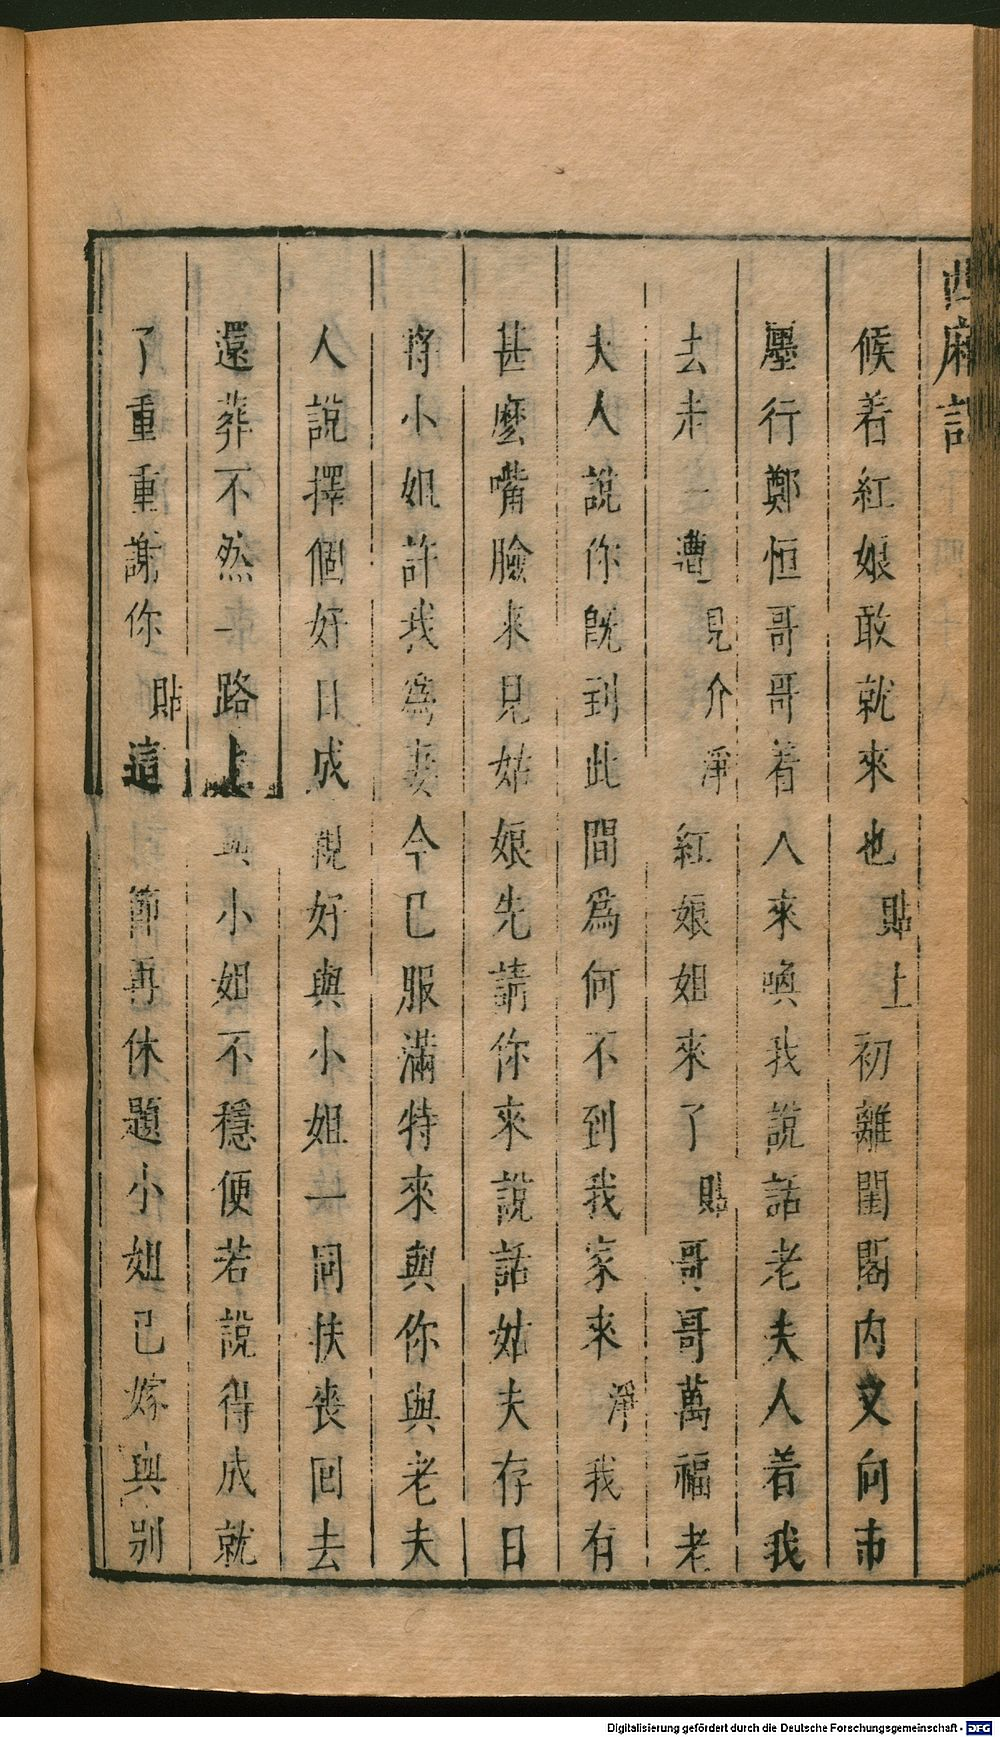 西廂記
候着紅娘敢就來也貼上初離閨閣内又向市
廛行鄭恒哥哥着人來喚我說話老夫人着我
去走一遭見介淨紅娘姐來了貼哥哥萬福老
夫人說你既到此間爲何不到我家來淨我有
甚麽嘴臉來見姑娘先請你來說話姑夫存日
將小姐許我爲妻今已服滿特來與你與老夫
人說擇個好日成親好與小姐一同扶喪回去
還葬不然一路上與小姐不穩便若說得成就
了重重謝你貼這節再休題小姐已嫁與別
Digitalisierung gefördert durch die Deutsche Forschungsgemeinschaft - DFG